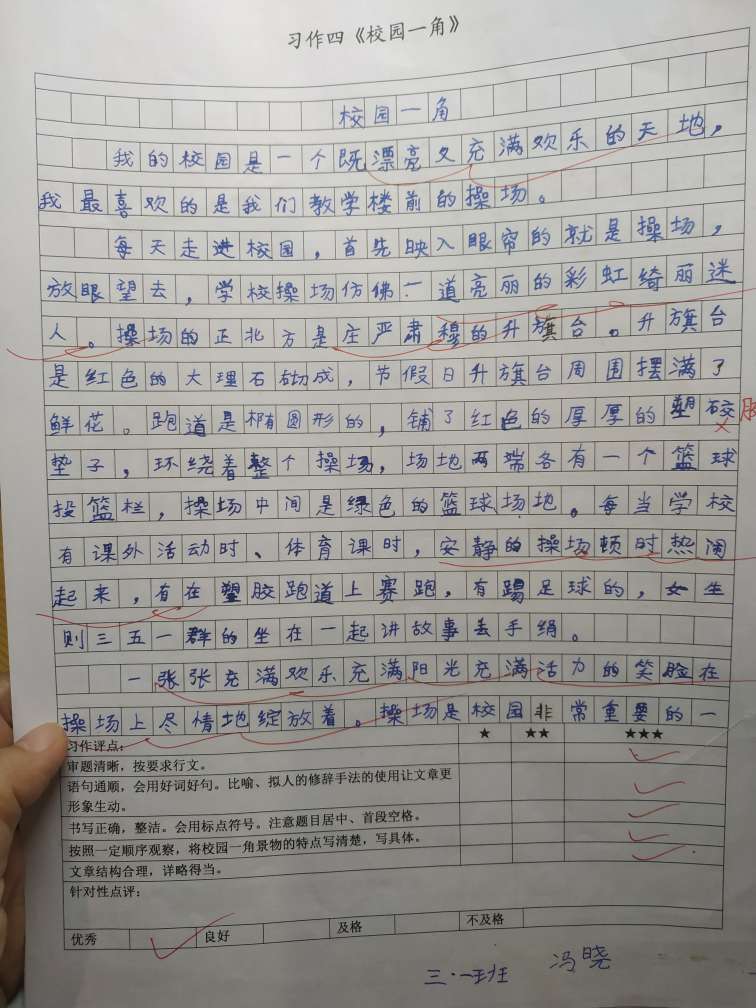 习作四《校园一角》
校园一角
我的校园是一个既漂亮又充满欢乐的天地，
我最喜欢的是我们教学楼前的操场。
每天走进校园，首先映入眼帘的就是操场，
放眼望去，学校操场仿佛一道亮丽的彩虹绮丽迷
人。操场的正北方是庄严肃穆的升旗台。升旗台
是红色的大理石砌成，节假日升旗台周围摆满了
鲜花。跑道是椭圆形的，铺了红色的厚厚的塑胶
垫子，环绕着整个操场，场地两端各有一个篮球
投篮栏，操场中间是绿色的篮球场地。每当学校
有课外活动时、体育课时，安静的操场顿时热闹
起来，有在塑胶跑道上赛跑，有踢足球的，女生
则三五一群的坐在一起讲故事丢手绢。
一张张充满欢乐充满阳光充满活力的笑脸在
操场上尽情地绽放着。操场是校园非常重要的一
习作评点： ★ ★★ ★★★
审题清晰，按要求行文。
语句通顺，会用好词好句。比喻、拟人的修辞手法的使用让文章更
形象生动。
书写正确，整洁。会用标点符号。注意题目居中、首段空格。
按照一定顺序观察，将校园一角景物的特点写清楚，写具体。
文章结构合理，详略得当。
针对性点评：
优秀 良好 及格 不及格
三·一班 冯晓